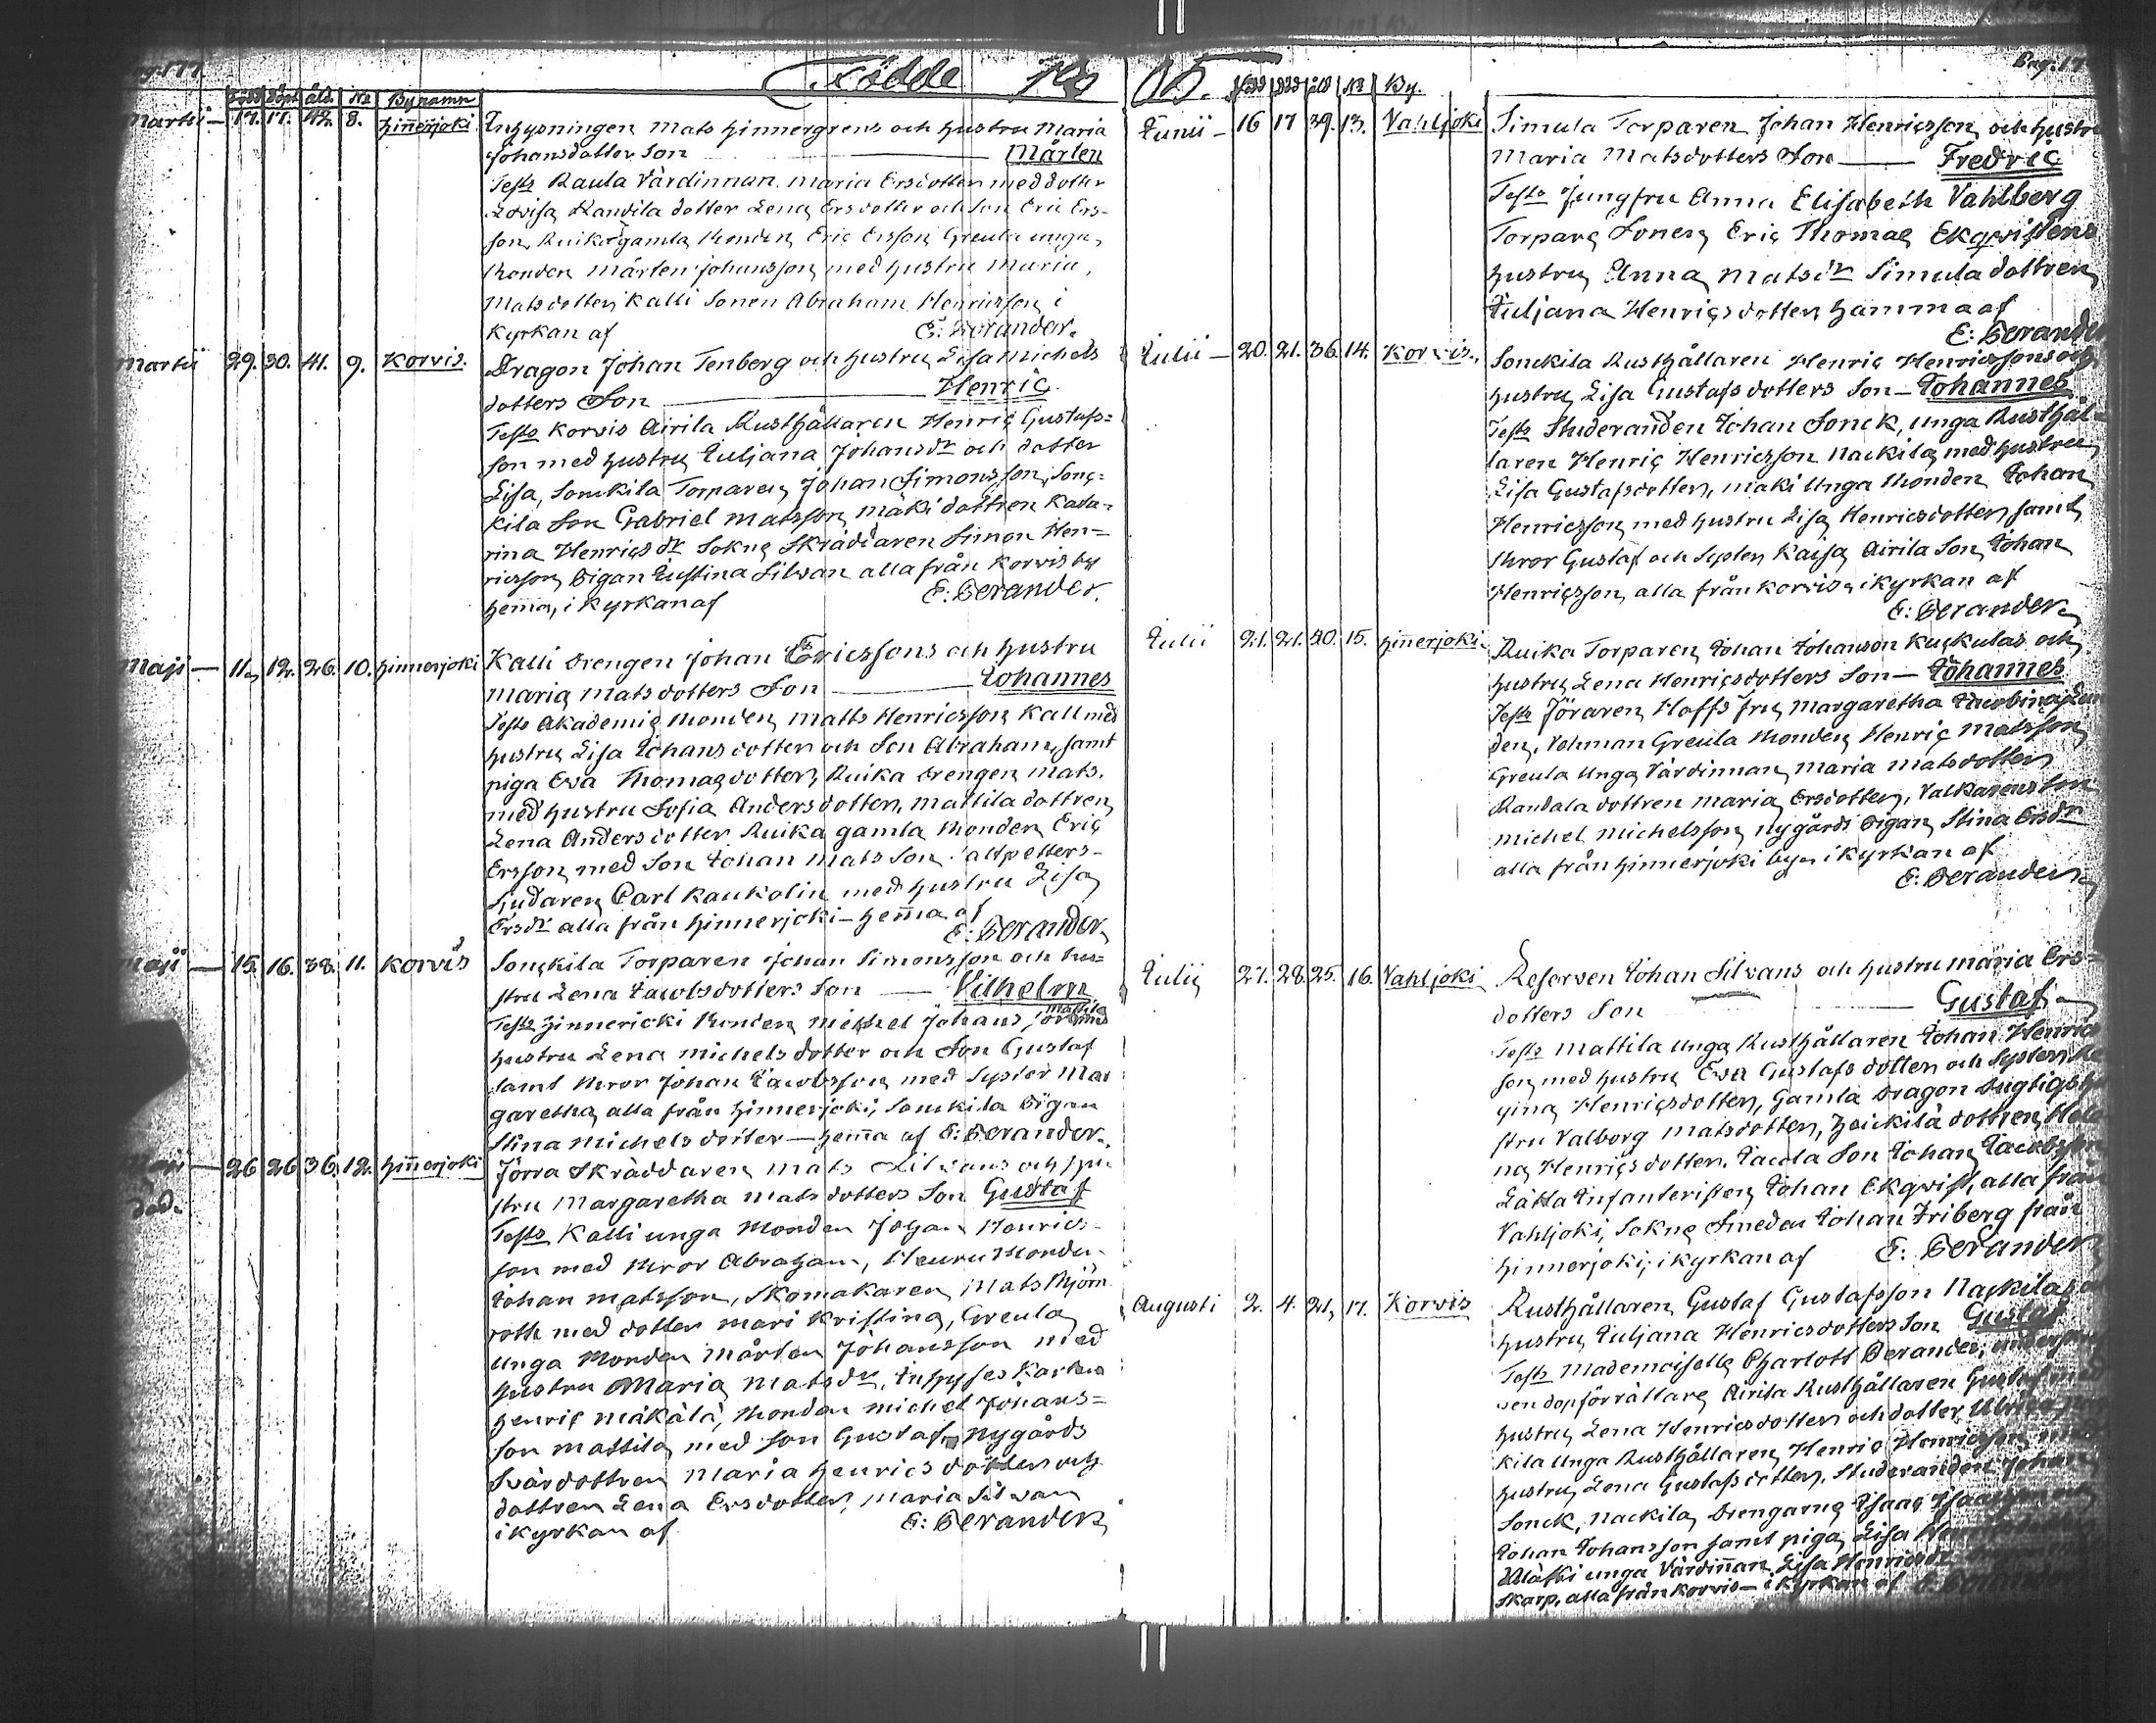 Födde
född döpt åld. No By namn
Martii — 17. 17. 42. 8. Hinnerjoki Inhysningen Mats Hinnergrens och hustru Maria
Johansdotter Son — Mårten
Tests Raula Värdinnan Maria Ersdotter med dotter
Lovisa Randila dotter Lena Ersdotter och Son Eric Ers-
son, Ruika gamla Bonden Eric Ersson Greula unga
Bonden Mårten Johansson med hustru Maria
Matsdotter, Kalli Sonen Abraham Henricsson, i
Kyrkan af E: Berander.
Martii 29. 30. 41. 9. Korvis. Dragon Johan Tenberg och hustru Lisa Michels
dotters Son — Henric
Tests Korvis Airila Rusthållaren Henric Gustafs-
son med hustru Juljana Johansdr och dotter
Lisa, Sonckila Torparen Johan Simonsson, Sonc-
kila Son Gabriel Matsson, Mäki dottren Kata-
rina Henricsdr Sokne Skräddaren Simon Hen-
ricsson, Pigan Justina Silvan alla från Korvis by
hemma, i Kyrkan af E: Berander.
Maji — 11. 12. 26. 10. Hinnerjoki Kalli Drengen Johan Ericssons och hustru
Maria Matsdotters Son — Johannes
Tests Akademie Bonden Matts Henricsson Kall med
hustru Lisa Johansdotter och Son Abraham, samt
piga Eva Thomasdotter, Ruika Drengen Mats
med hustru Sofia Andersdotter, Mattila dottren
Lena Andersdotter Ruika gamla Bonden Eric
Ersson med Son Johan Mats Son Saltpetters-
sjudaren Carl Kaukolin med hustru Lisa
Ersdr alla från Hinnerjoki — hemma af
E: Berander
Maji — 15. 16. 38. 11. Korvis Sonckila Torparen Johan Simonsson och hu-
stru Lena Jacobsdotters Son — Vilhelm
Tests Hinnerjoki Bonden Michel Johansson Mattila med
hustru Lena Michelsdotter och Son Gustaf
samt Bror Johan Jacobsson med Syster Mar
garetha, alla från Hinnerjoki, Sonckila Pigan
Stina Michelsdotter — hemma af E: Berander.
Maji — 26 26 36. 12. Hinnerjoki Jörra Skräddaren Mats Silvans och hu-
död. stru Margaretha Matsdotters Son Gustaf
Tests Kalli unga Bonden Johan Henrics-
son med Bror Abraham, Bonden
Johan Matsson, Skomakaren Mats Björn
roth med dotter Mari Kristina, Greula
Unga Bonden Mårten Johansson med
hustru Maria Matsdr, Inhyses Karlen
Henric Mäkälä, Bonden Michel Johans-
son Mattila med son Gustaf, Nygårds
Svärdottren Maria Henricsdotter och
dottren Lena Ersdotter, Maria Silvan
i kyrkan af E: Berander
05. född död åld No By.
Junii — 16 17 39. 13. Vahljoki Simula Torparen Johan Henricsson och hustru
Maria Matsdotters Son — Fredric
Tests Jungfru Anna Elisabeth Vahlberg
Torpare Sonen Eric Thomae Ekqvistens
hustru Anna Matsdr Simula dottren
Juljana Henricsdotter hemma af
E: Berander
Julii — 20. 21. 36. 14. Korvis. Sonckila Rusthållaren Henric Henricssons och
hustru Lisa Gustafsdotters Son — Johannes
Tests Studeranden Johan Sonck, unga Rusthål-
laren Henric Henricsson Nackila med hustru
Lisa Gustafsdotter, Mäki Unga Bonden Johan
Henricsson med hustru Lisa Henricsdotter samt
Bror Gustaf och Syster Kaisa Airila Son Johan
Henricsson, alla från Korvis, i kyrkan af
E: Berander
Julii 21. 21. 20. 15. Hinnerjoki. Ruika Torparen Johan Johanson Kuckulas och
hustru Lena Henricsdotters Son — Johannes
Tests Jöraren Hoffs fru Margaretha
den, Vohman Greula Bonden Henric Matsson
Greula Unga Värdinnan Maria Matsdotter
Randala dottren Maria Ersdotter, Valkarens son
Michel Michelsson, Nygårds Pigan Stina Ersdr
alla från Hinnerjoki by, i kyrkan af
E: Berander
Julii 27. 28. 25. 16. Vahljoki Reserven Johan Silvans och hustru Maria Ers-
dotters Son — Gustaf
Tests Mattila unga Rusthållaren Johan Henrics
son med hustru Eva Gustafsdotter och Syster Re
gina Henricsdotter, Gamla Dragon Dugtigs hu
stru Valborg Matsdotter, Heickilä dottren Hele
na Henricsdotter. Jacola Son Johan Jacobsson
Lätta Infanteristen Johan Ekqvist, alla från
Vahljoki, Sokne Smeden Johan Friberg från
Hinnerjoki, i kyrkan af E: Berander
Augusti 2. 4. 21. 17. Korvis Rusthållaren Gustaf Gustafsson Nackilas
hustru Juljana Henricsdotters Son Gustaf
Tests Mademoiselle Charlott Berander,
ven dopförrättare Airila Rusthållaren Gustaf med
hustru Lena Henricsdotter och dotter Ulrica
kila Unga Rusthållaren Henric Henricsson med
hustru Lena Gustafsdotter, Studeranden Johan
Sonck, Nackila Drengarne Isaac
Johan Johansson samt piga Lisa
unga Värdinnan Lisa Henricsdr
Skarp, alla från Korvis — i kyrkan af